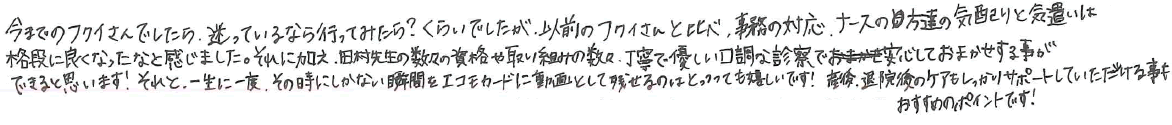 今までのフクイさんでしたら、迷っているなら行ってみたら?くらいでしたが、以前のフクイさんと比べ、事務の対応、ナースの方達の気配りと気遣いは
格段に良くなったなと感じました。それに加え、田村先生の数々の資格や取り組みの数々、丁寧で優しい口調な診察で安心しておまかせする事が
できると思います!それと、一生に一度、その時にしかない瞬間をエコモカードに動画として残せるのはとっっても嬉しいです!産後、退院後のケアもしっかりサポートしていただける事も
おすすめのポイントです!